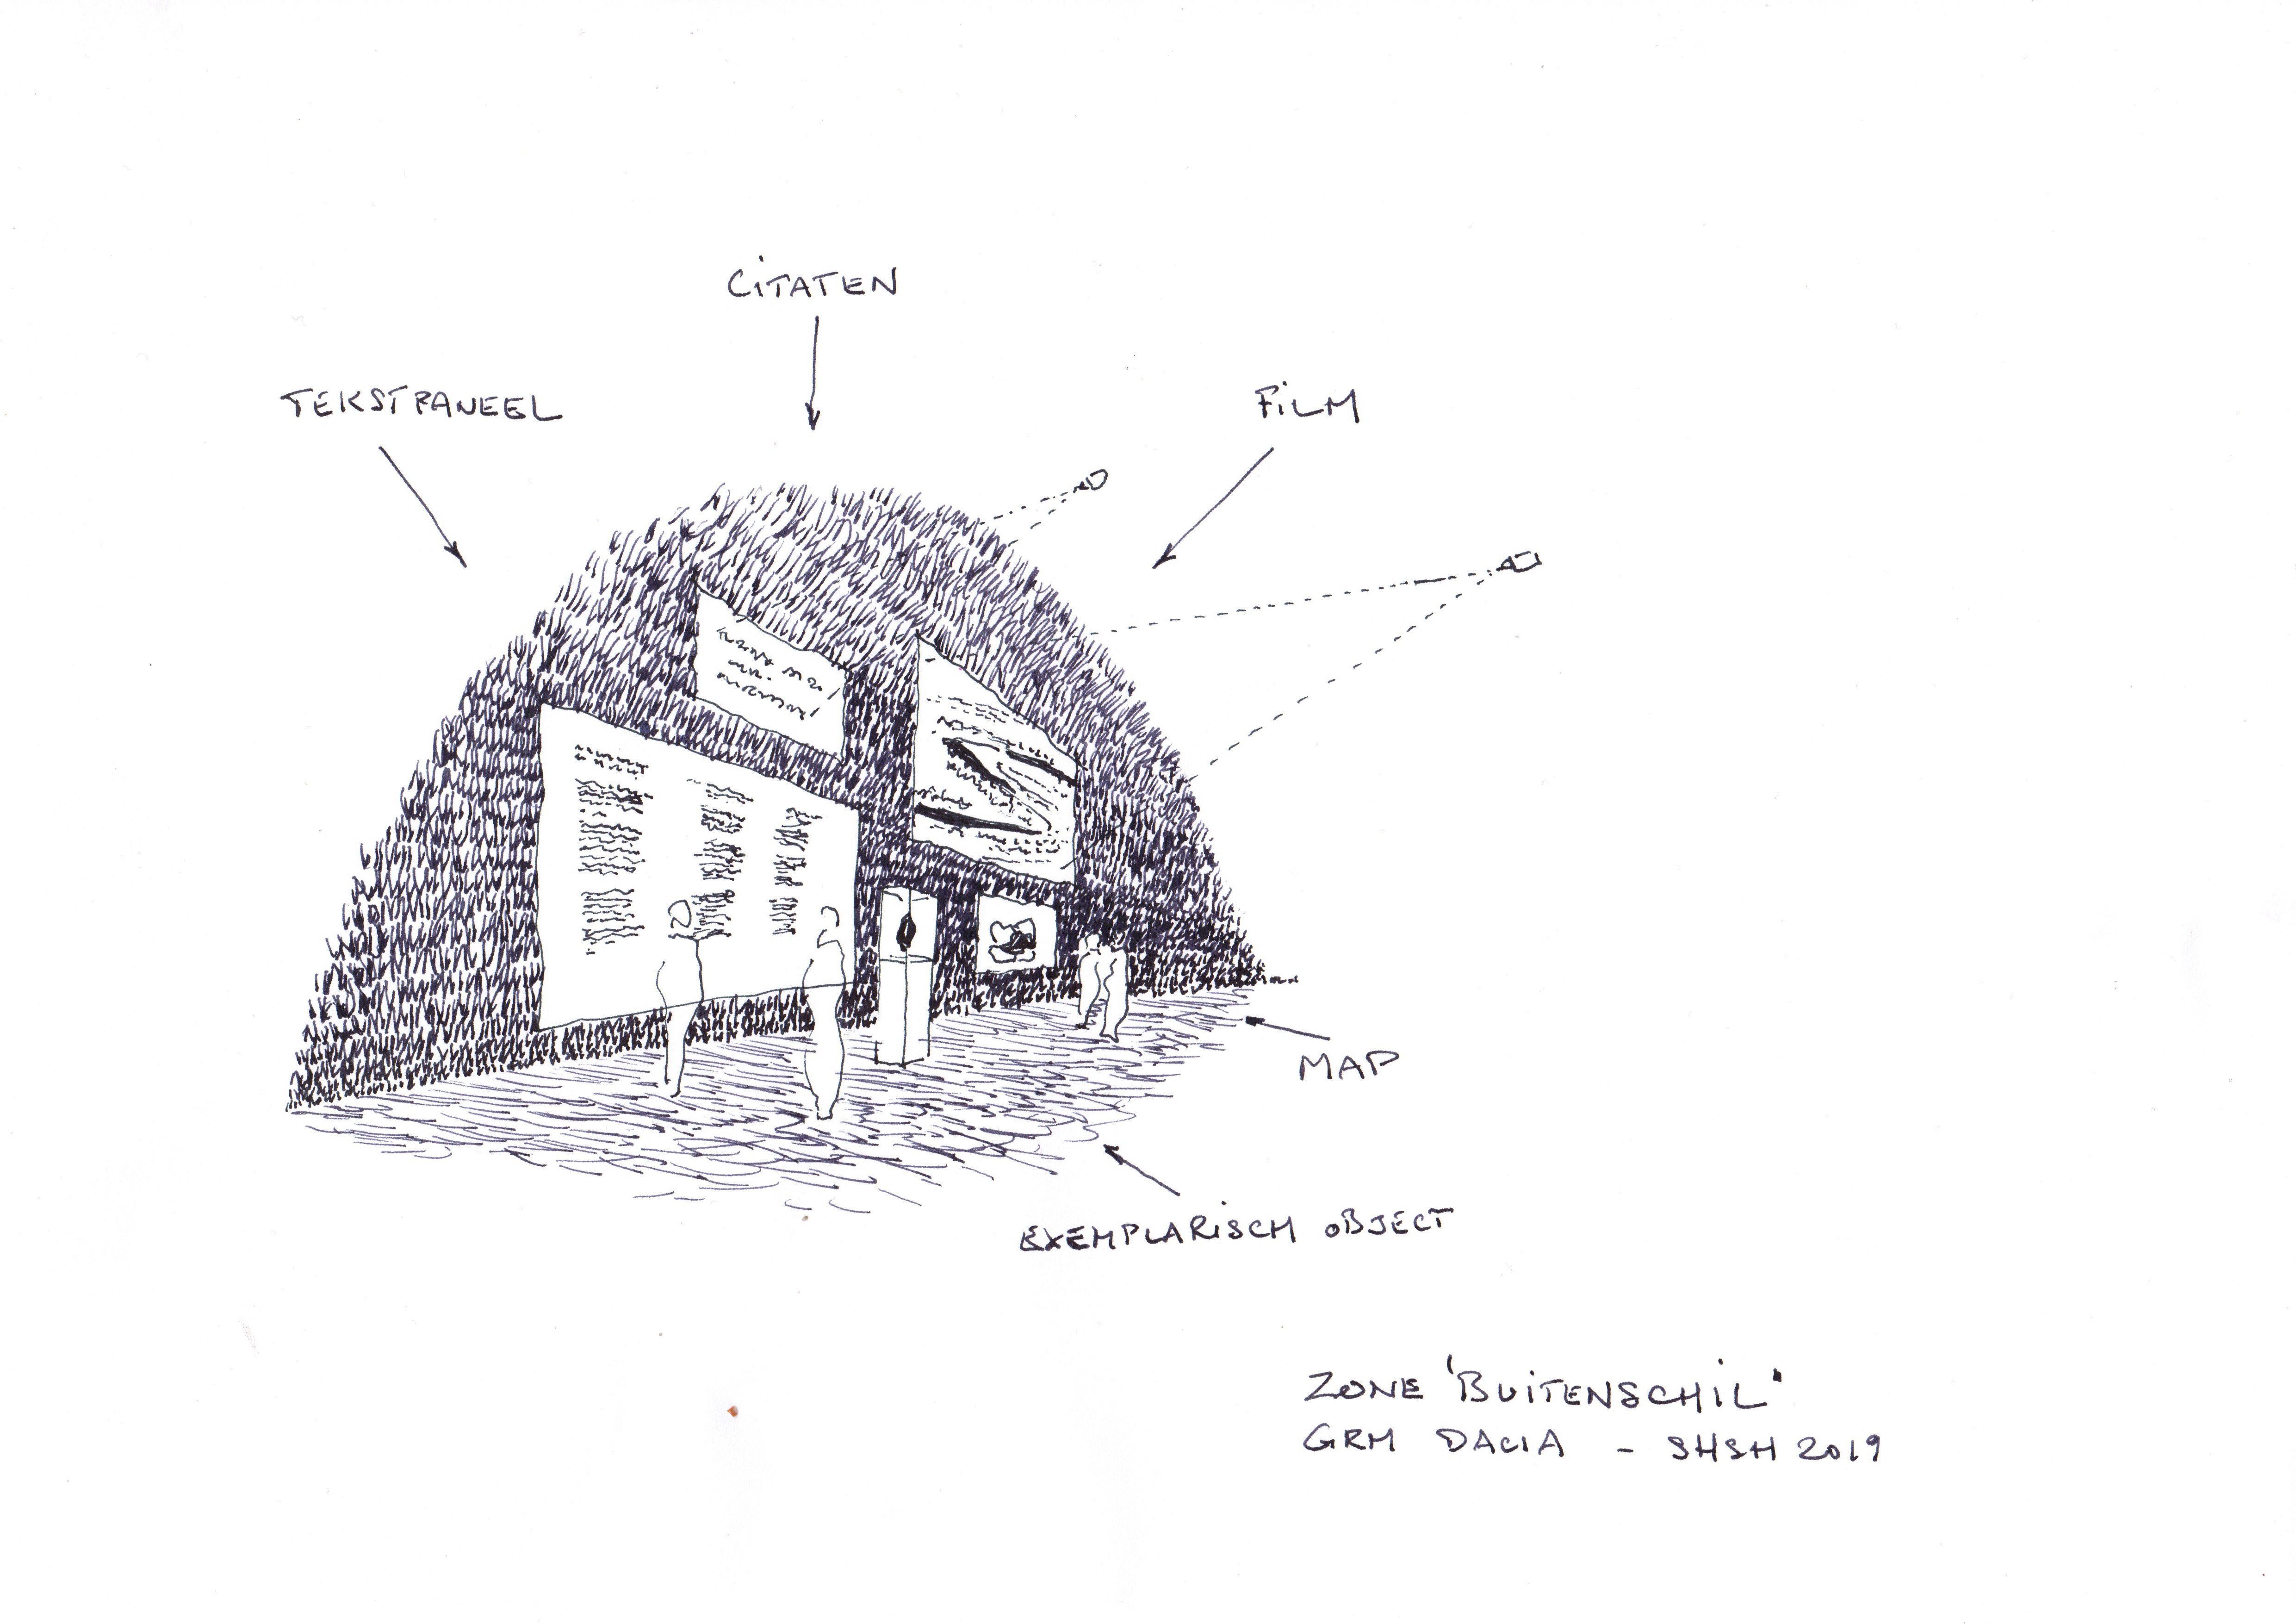 CITATEN
TEKSTPANEEL
FILM
MAP
EXEMPLARISCH OBJECT
ZONE 'BUITENSCHIL'
GRM DACIA - SHSH 2019